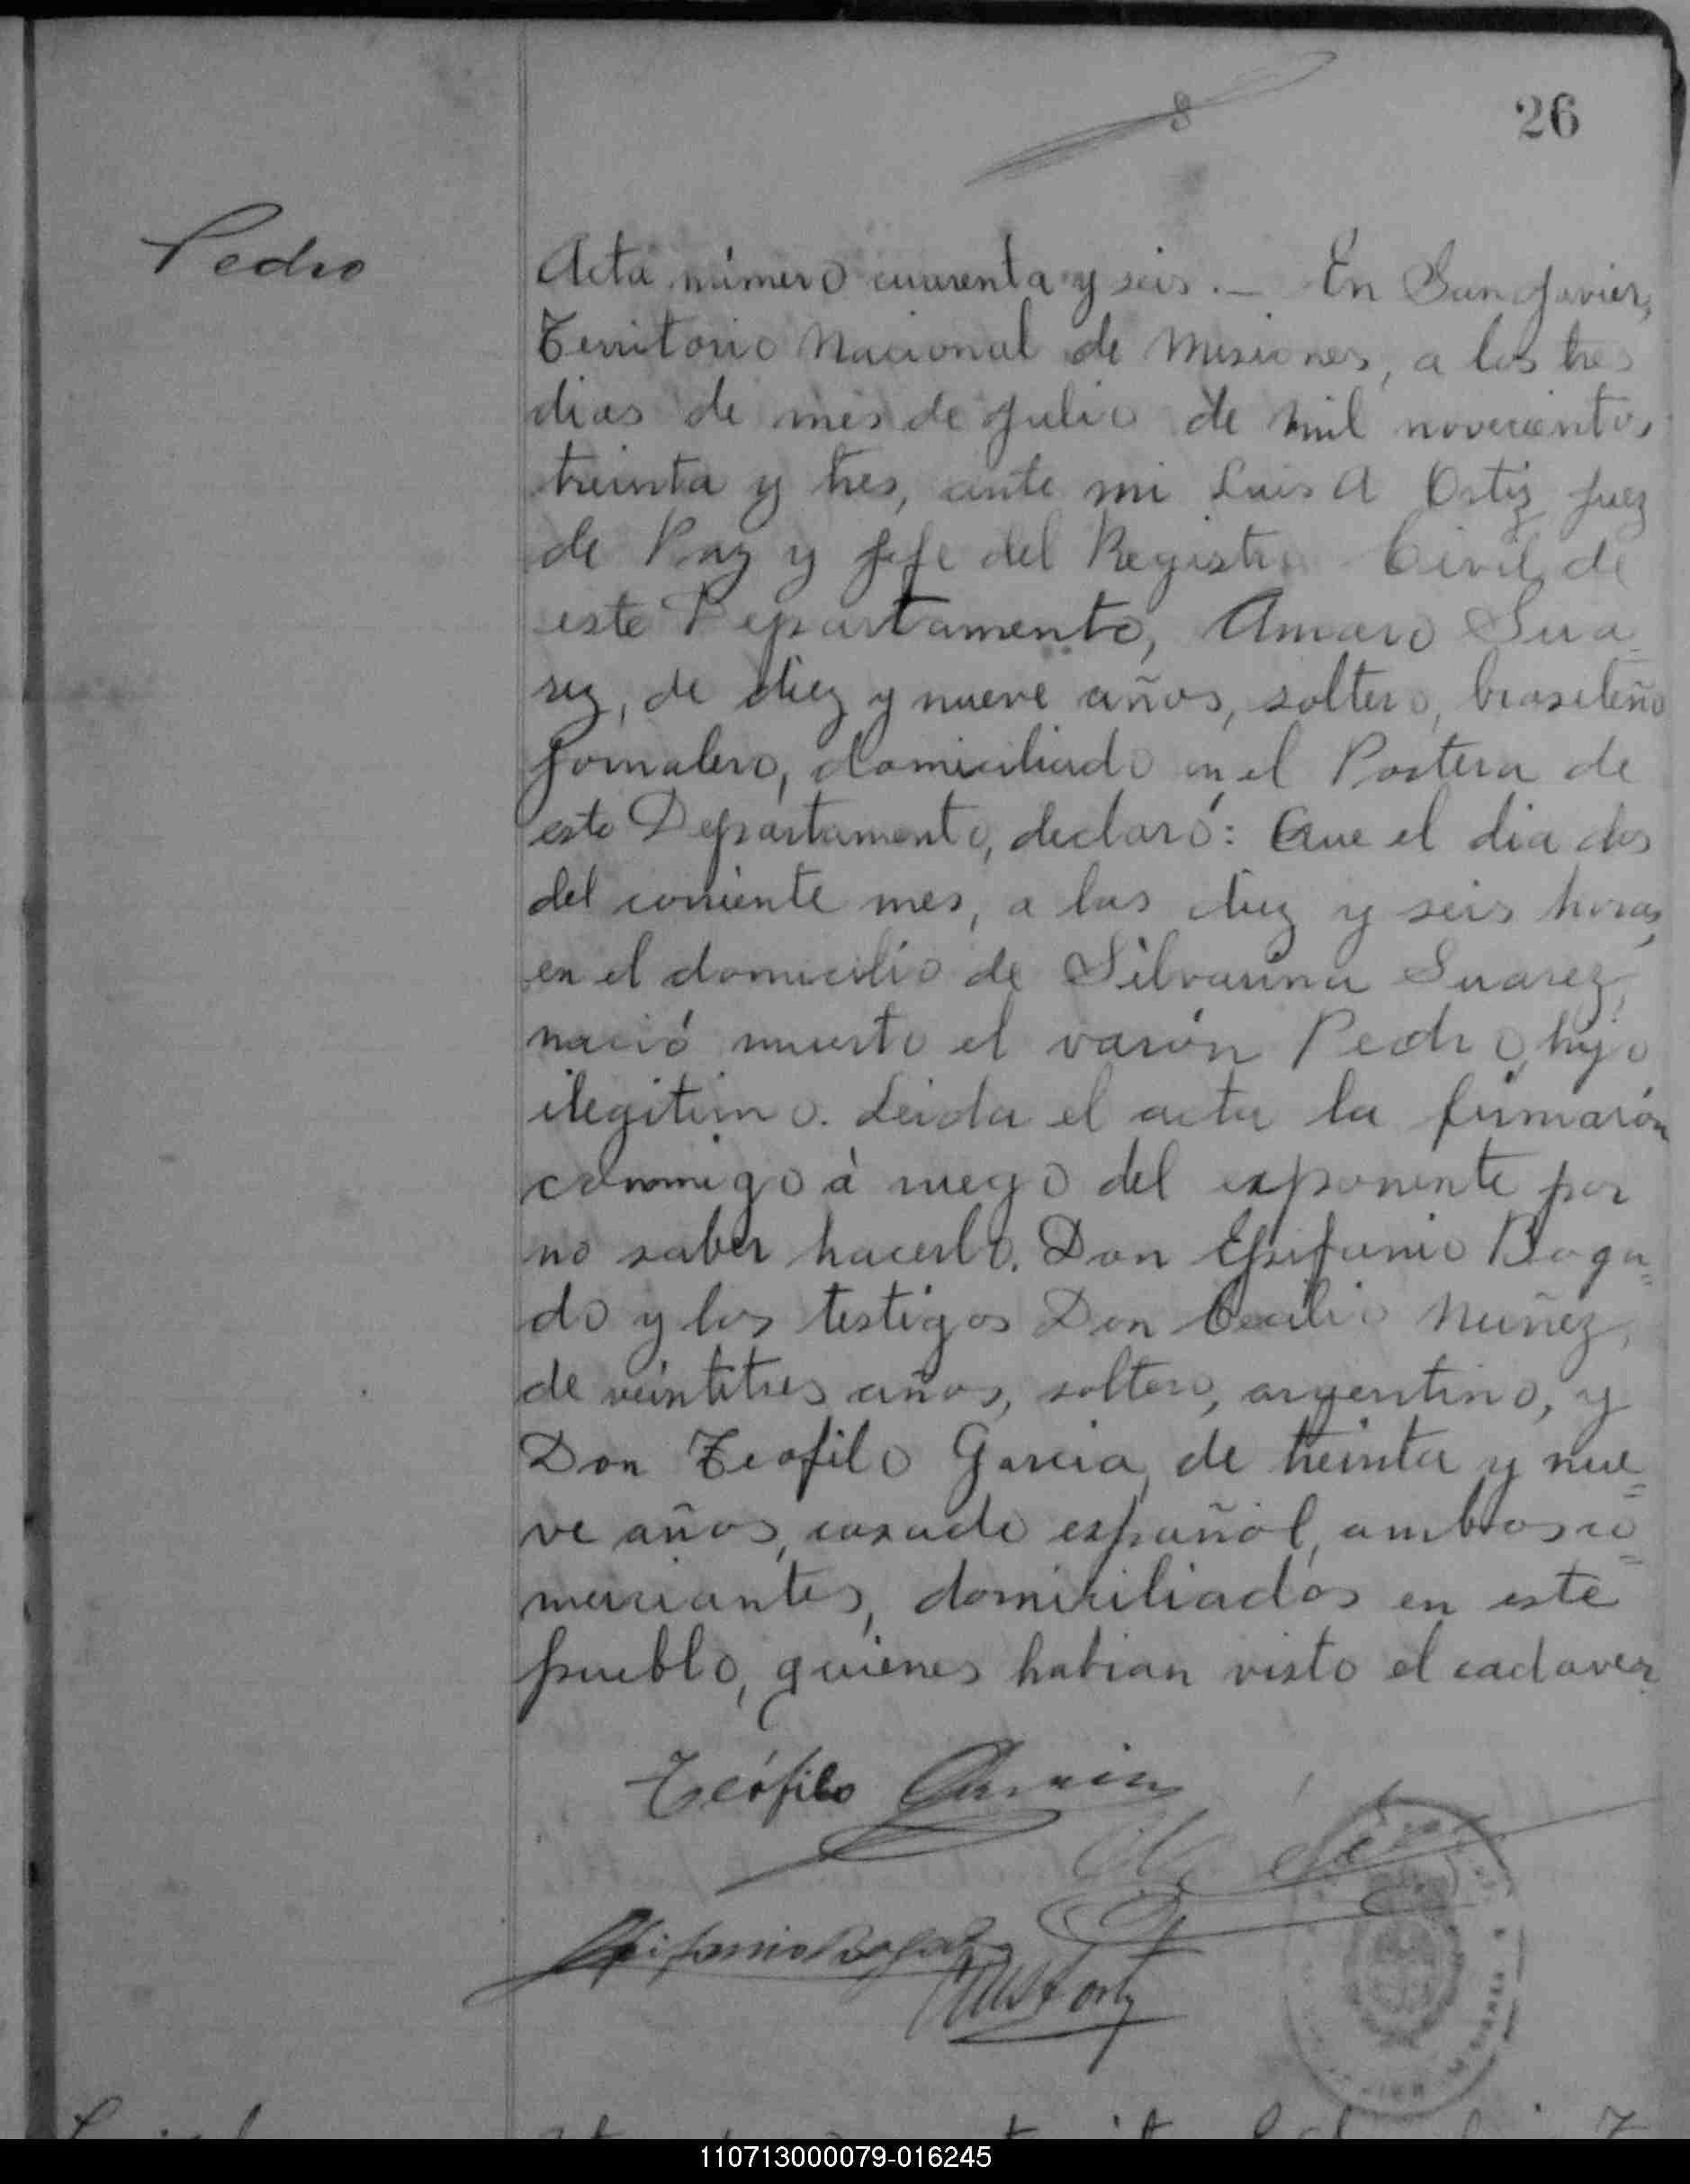 26
Pedro
Acta número cuarenta y seis. — En San Javier,
Territorio Nacional de Misiones, a los tres
dias de mes de Julio de mil novecientos
treinta y tres, ante mi Luis A Ortiz Juez
de Paz y Jefe del Registro Civil de
este Departamento, Amaro Sua
rez, de diez y nueve años, soltero, brasileño
Jornalero, domiciliado en el Portera de
este Departamento, declaró: Que el dia dos
del corriente mes, a las diez y seis horas,
en el domicilio de Silvarina Suarez,
nació muerto el varón Pedro, hijo
ilegitimo. Leida el acta la firmarón
conmigo à ruego del exponente por
no saber hacerlo. Don Epifanio Boga=
do y los testigos Don Cecilio Nuñez,
de veintitres años, soltero, argentino, y
Don Teofilo Garcia, de treinta y nue=
ve años, casado español, ambos co=
merciantes, domiciliados en este
pueblo, quienes habian visto el cadaver
Teófilo Garcia
Epifanio Bogado
Luis A Ortiz
110713000079-016245